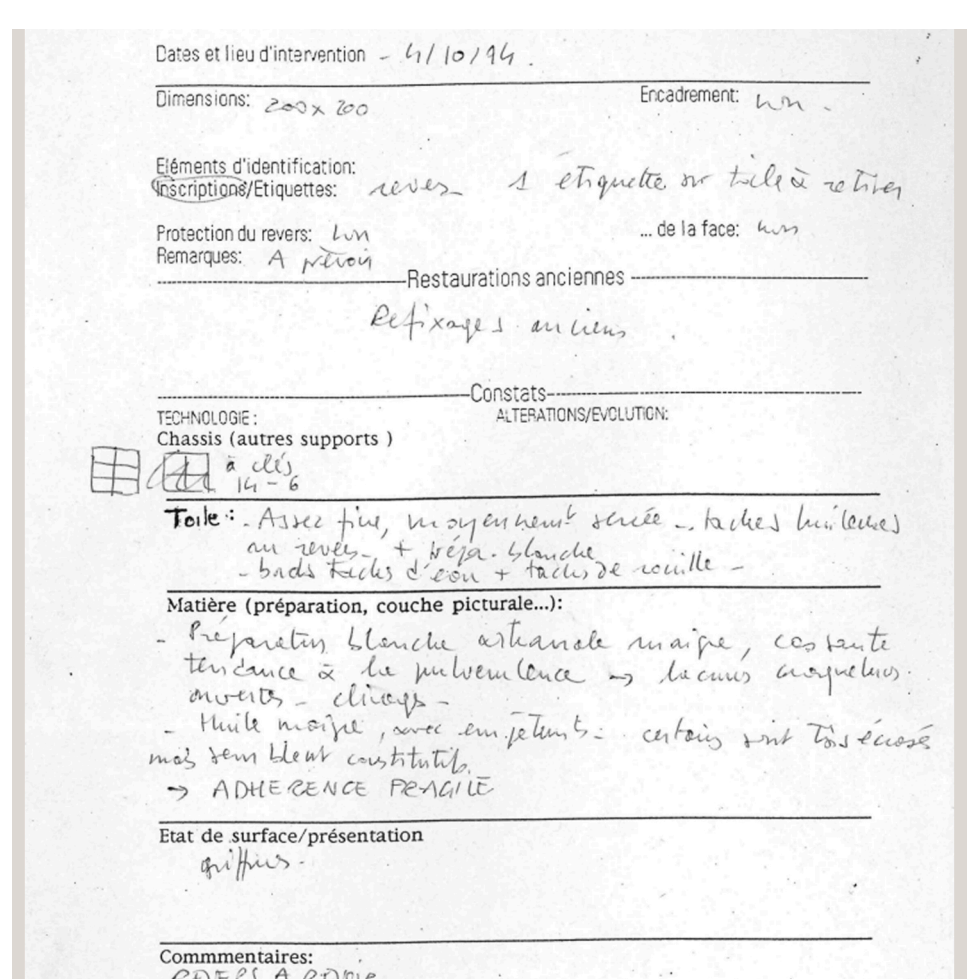 Dates et lieu d'intervention - 4/10/94.
Dimensions: 200 x 200 Encadrement: non.
Eléments d'identification:
Inscriptions/Etiquettes: revers 1 étiquette sur toile à retirer
Protection du revers: non ... de la face: non
Remarques: A
Restaurations anciennes
Refixages anciens
Constats
TECHNOLOGIE: ALTERATIONS/EVOLUTION:
Chassis (autres supports )
à clés
14-6
Toile: - Assez fine, moyennement serrée - taches huileuses
au revers - + prépa. blanche
- bords taches d'eau + taches de rouille -
Matière (préparation, couche picturale...):
- Préparation blanche artisanale maigre, cassante
tendance à la pulvérulence → lacunes craquelures
ouvertes - clivages -
- Huile maigre, avec empâtements - certains sont très écrasés
mais semblent constitutifs.
→ ADHERENCE FRAGILE
Etat de surface/présentation
griffures -
Commmentaires: